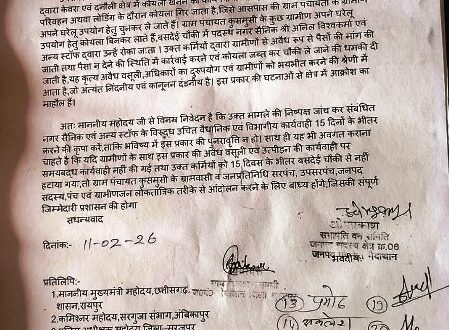 दवारा केवरा एवं दनौली क्षेत्र में कोयला खनन का
परिवहन अथवा लोडिंग के दौरान कोयला गिर जाता है,जिसे आसपास की ग्राम पंचायता के
अपने घरेलू उपयोग हेतु चुनकर ले जाते हैं। ग्राम पंचायत कुसमुसी के कुछ ग्रामीण अपने घरेलू
उपयोग हेतु कोयला बिनकर लाते हैं,बसदेई चौकी में पदस्थ नगर सैनिक श्री अनिल विश्वकर्मा एवं
अन्य स्टॉफ दवारा उन्हे रोका जाता । उक्त कर्मियों दवारा ग्रामीणों से अवैध रूप से पैसों की मांग की
जाती तथा पैसा न देने की स्थिति में कार्रवाई करने एवं कोयला जब्त कर चौकी ले जाने की धमकी दी
जाती है,यह कृत्य अवैध वसूली,अधिकारों का दुरूपयोग एवं ग्रामीणों को भयभीत करने की श्रेणी में
आता है,जो अत्यंत निंदनीय एवं कानूनन दंडनीय है। इस प्रकार की घटनाओं से क्षेत्र में आक्रोश का
माहौल हैं।
अतः माननीय महोदय जी से विनम्र निवेदन है कि उक्त मामले की निष्पक्ष जांच कर संबंधित
नगर सैनिक एवं अन्य स्टॉफ के विरूद्ध उचित वैधानिक एवं विभागीय कार्यवाही 15 दिनों के भीतर
करने की कृपा करें,ताकि भविष्य में इस प्रकार की पुनरावृत्ति न हो। साथ ही यह भी अवगत कराना
चाहते है कि यदि ग्रामीणों के साथ इस प्रकार की अवैध वसूली एवं उत्पीडन की कार्यवाही पर
समयबद्ध कार्यवाही नही की गई तथा उक्त कर्मियों को 15 दिवस के भीतर बसदेई चौकी से नहीं
हटाया गया,तो ग्राम पंचायत कुसमुसी के ग्रामवासी व जनप्रतिनिधि सरपंच, उपसरपंच,जनपद
सदस्य,पंच एवं ग्रामीणजन लोकतांत्रिक तरीके से आंदोलन करने के लिए बाध्य होंगे,जिसकी संपूर्ण
जिम्मेदारी प्रशासन की होगा
सधन्यवाद
सभापति वन समिति
जनपद सदस्य क्षेत्र क्र.06
दिनांक:- 11-02-26
प्रतिलिपिः-
1.माननीय मुख्यमंत्री महोदय,छत्तीसगढ़
शासन,रायपुर
2.कमिश्नर महोदय,सरगुजा संभाग,अंबिकापुर
(13) प्रमोद (19)
(14)